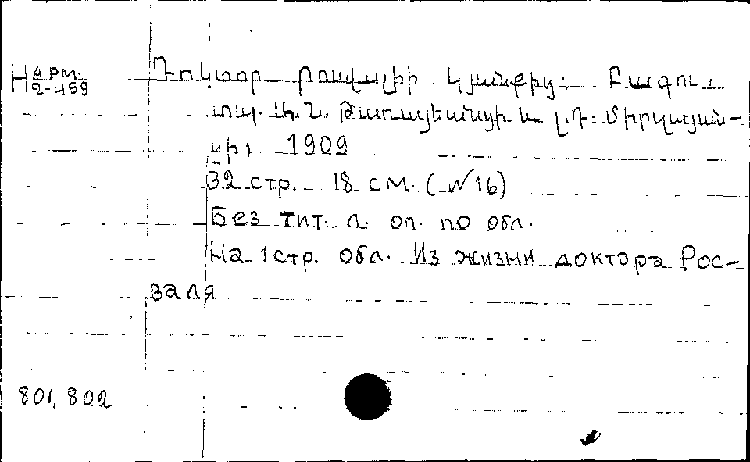 Нарм.
2-459
Դոկտոր Րոսսալիի կյանքից: Բագու
տպ. Ա. Ն. Թառայեանցի և Լ. Դ. Միրկայան-
ցի, 1909
32 стр. 18 см. (№16)
Без тит. л. оп. по обл.
На 1 стр. обл. Из жизни доктора Рос-
заля
801, 802